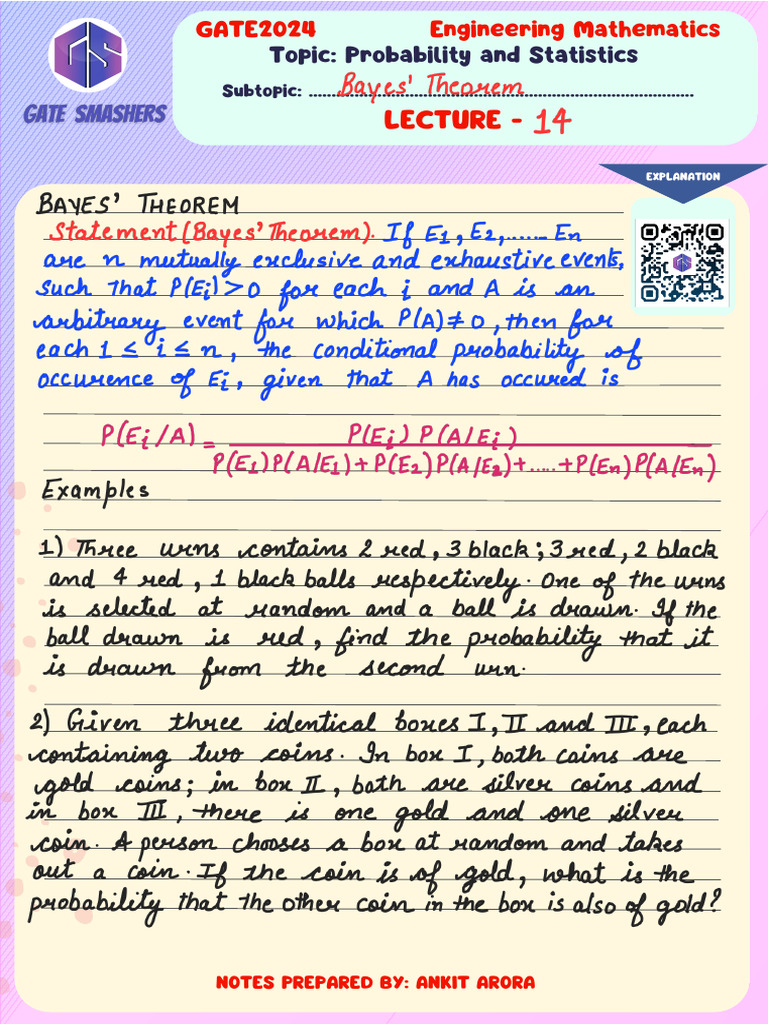 GATE2024 Engineering Mathematics
Topic: Probability and Statistics
Subtopic: ........Bayes' Theorem........
LECTURE - 14
GS
GATE SMASHERS
EXPLANATION
BAYES' THEOREM
Statement (Bayes' Theorem). If E1, E2,....... En
are n mutually exclusive and exhaustive events,
such that P(Ei) > 0 for each i and A is an
arbitrary event for which P(A) ≠ 0, then for
each 1 ≤ i ≤ n, the conditional probability of
occurence of Ei, given that A has occured is
P(Ei/A) = P(Ei) P(A/Ei)
P(E1)P(A/E1)+P(E2)P(A/E2)+.....+P(En)P(A/En)
Examples
1) Three urns contains 2 red, 3 black; 3 red, 2 black
and 4 red, 1 black balls respectively. One of the urns
is selected at random and a ball is drawn. If the
ball drawn is red, find the probability that it
is drawn from the second urn.
2) Given three identical boxes I, II and III, each
containing two coins. In box I, both coins are
gold coins; in box II, both are silver coins and
in box III, there is one gold and one silver
coin. A person chooses a box at random and takes
out a coin. If the coin is of gold, what is the
probability that the other coin in the box is also of gold?
NOTES PREPARED BY: ANKIT ARORA